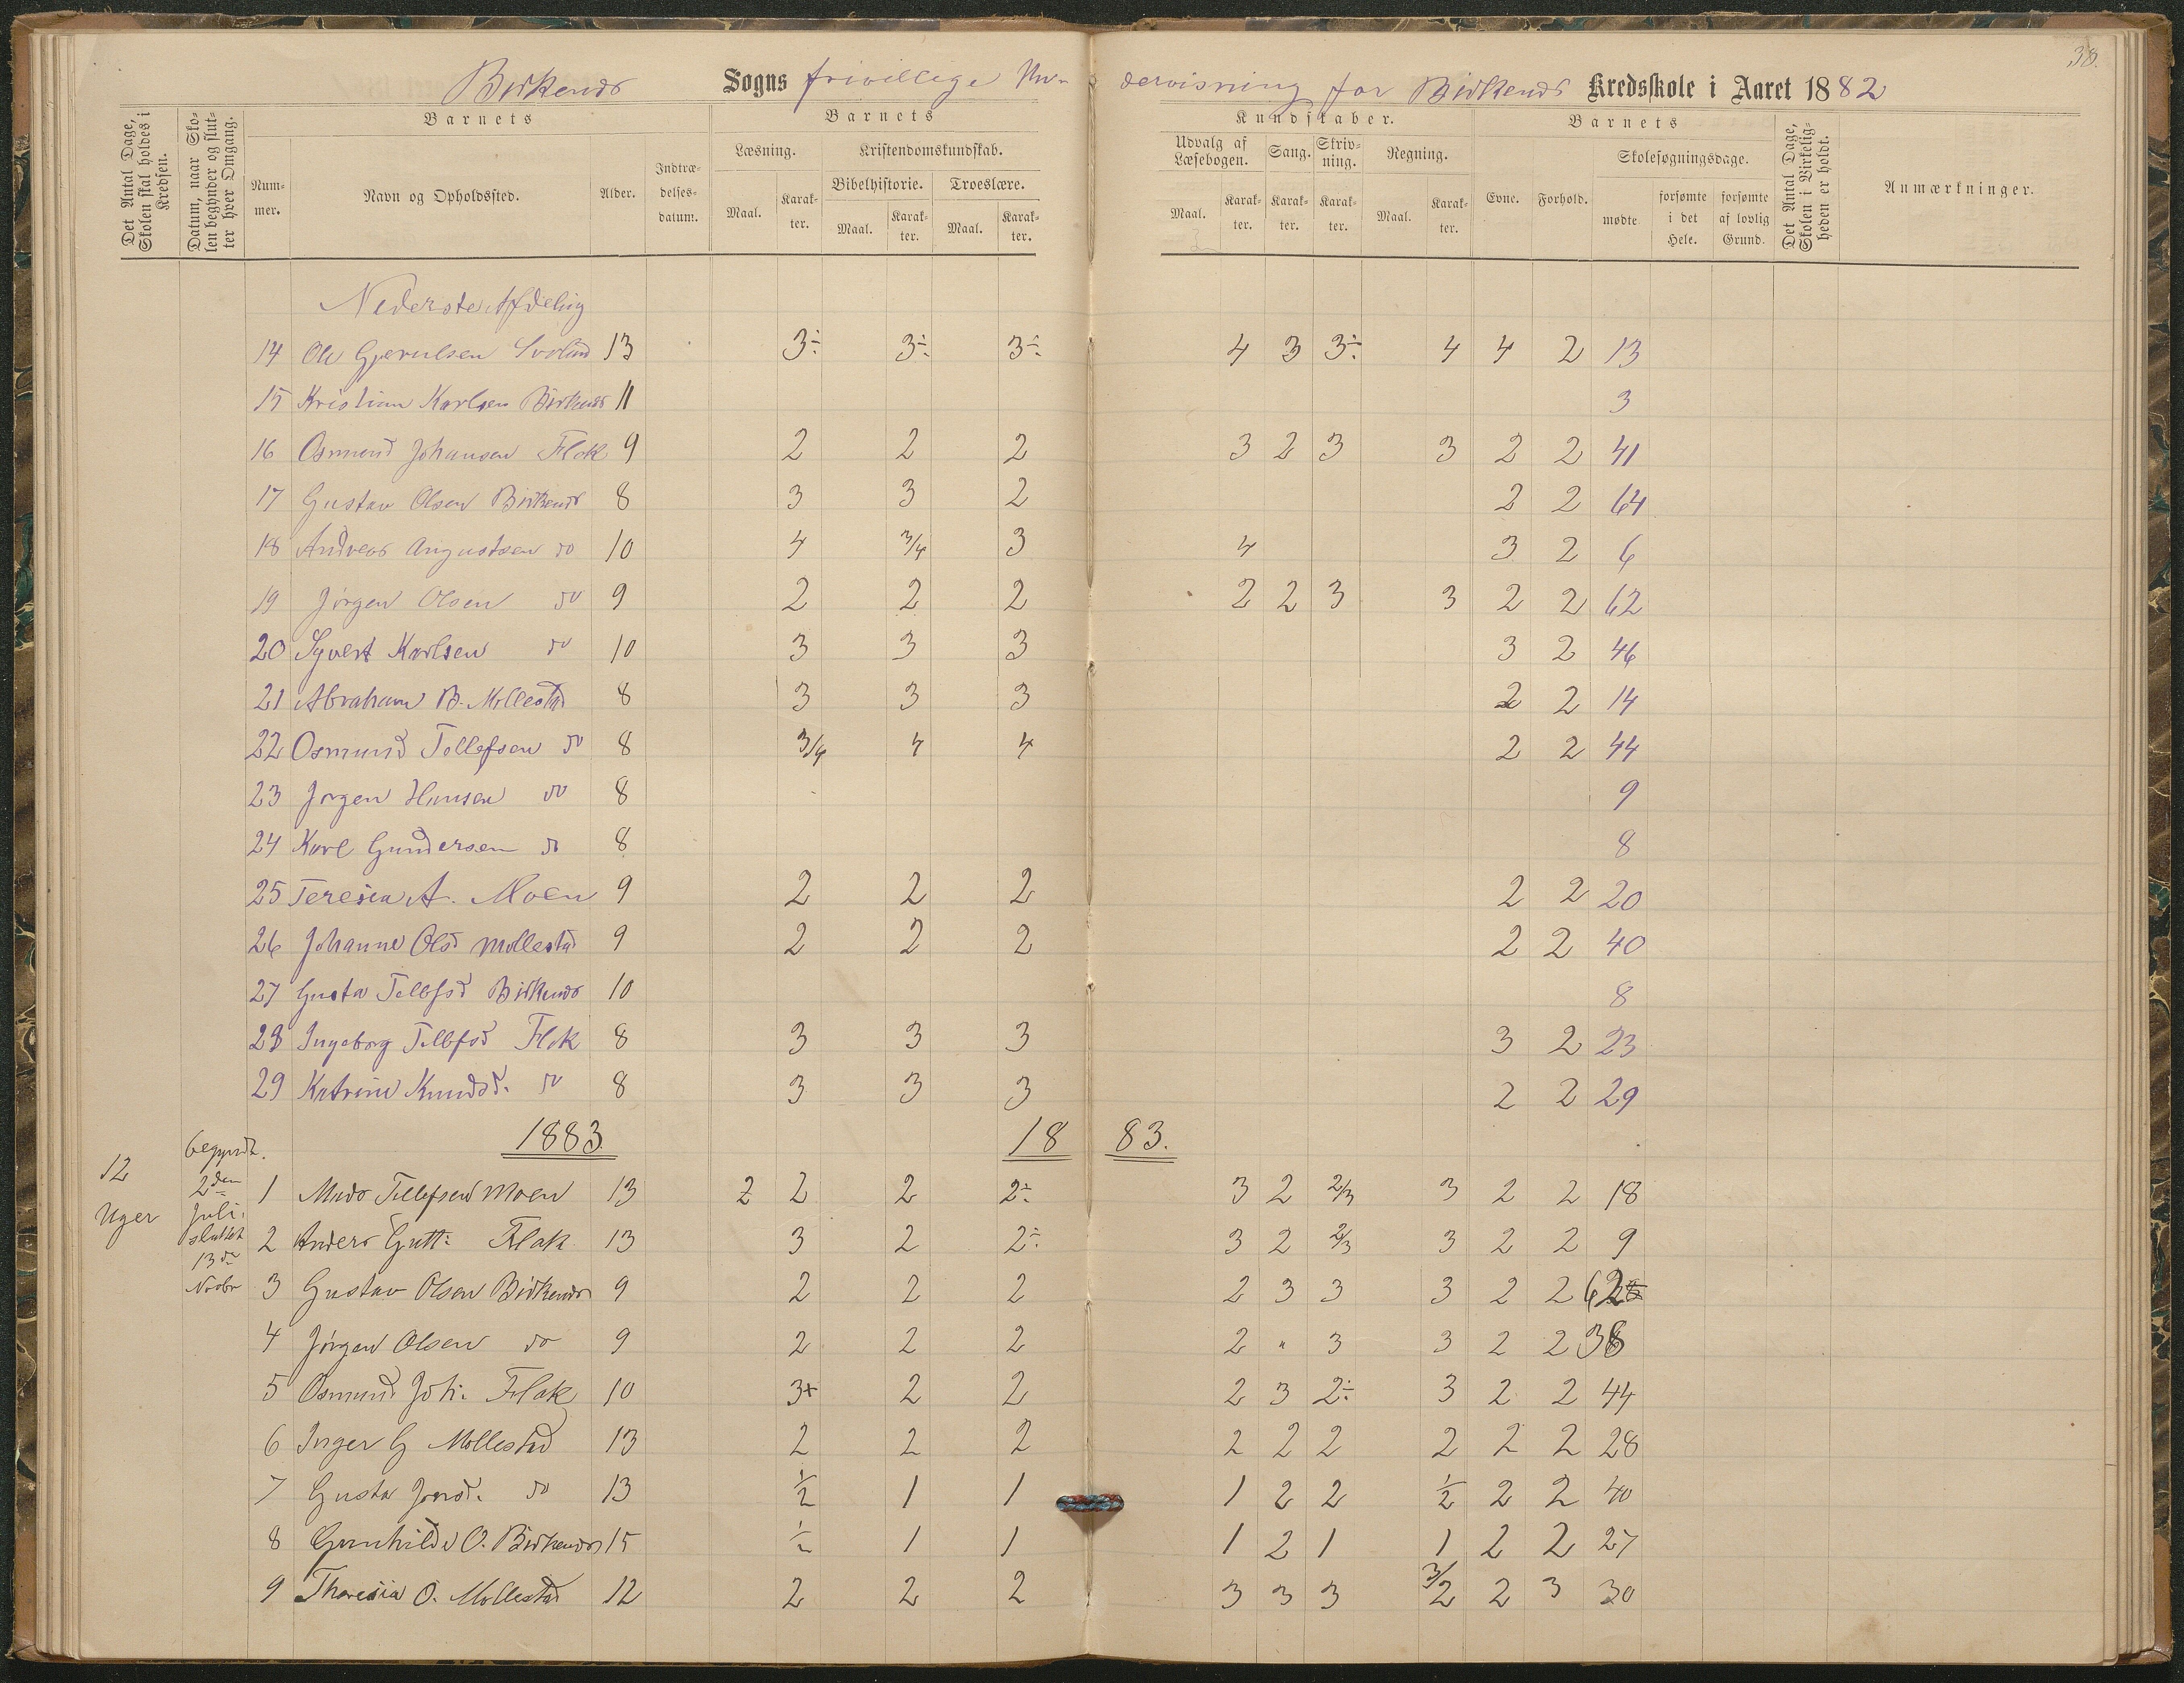 38.
Birkenes Sogns frivillige Un- dervisning for Birkenes Kredsskole i Aaret 1882
Det Antal Dage, Skolen skal holdes i Kredsen.
Datum, naar Skolen begynder og slutter hver Omgang.
Barnets
Nummer.
Navn og Opholdssted.
Alder.
Indtrædelsesdatum.
Barnets
Læsning.
Maal.
Karakter.
Kristendomskundskab.
Bibelhistorie.
Maal.
Karakter.
Troeslære.
Maal.
Karakter.
Kundskaber.
Udvalg af Læsebogen.
Maal.
Karakter.
Sang.
Karakter.
Skrivning.
Karakter.
Regning.
Maal.
Karakter.
Barnets
Evne.
Forhold.
Skolesøgningsdage.
mødte
forsømte i det Hele.
forsømte af lovlig Grund.
Det Antal Dage, Skolen i Virkeligheden er holdt.
Anmærkninger.
Nederste Afdeling
14 Ole Gjerulsen 13 3÷ 3÷ 3÷ 4 3 3÷ 4 4 2 13
15 Kristian Karlsen Birkenes 11 3
16 Osmund Johansen Flak 9 2 2 2 3 2 3 3 2 2 41
17 Gustav Olsen Birkenes 8 3 3 2 2 2 64
18 Andreas Augustsen do 10 4 3/4 3 4 3 2 6
19 Jørgen Olsen do 9 2 2 2 2 2 3 3 2 2 62
20 Syvert Karlsen do 10 3 3 3 3 2 46
21 Abraham B. Mollestad 8 3 3 3 2 2 14
22 Osmund Tellefsen do 8 3/4 4 4 2 2 44
23 Jørgen Hansen do 8 9
24 Karl Gundersen do 8 8
25 Teresia A. Moen 9 2 2 2 2 2 20
26 Johanne Olsd Mollestad 9 2 2 2 2 2 40
27 Gusta Tellefsd Birkenes 10 8
28 Ingeborg Tellefsd Flak 8 3 3 3 3 2 23
29 Katrine Knudsd. do 8 3 3 3 2 2 29
1883. 18 83.
12 Uger
begyndt. 2den Juli. sluttet 13de Novbr
1 Mads Tellefsen Moen 13 2 2 2 2÷ 3 2 2/3 3 2 2 18
2 Anders Gutt: Flak 13 3 2 2÷ 3 2 2/3 3 2 2 9
3 Gustav Olsen Birkenes 9 2 2 2 2 3 3 3 2 2 62
4 Jørgen Olsen do 9 2 2 2 2 " 3 3 2 2 38
5 Osmund Joh: Flak 10 3+ 2 2 2 3 2÷ 3 2 2 44
6 Inger G Mollestad 13 2 2 2 2 2 2 2 2 2 28
7 Gusta Jensd. do 13 1/2 1 1 1 2 2 1/2 2 2 40
8 Gunhilde O. Birkenes 15 1/2 1 1 1 2 1 1 2 2 27
9 Theresia O. Mollestad 12 2 2 2 3 3 3 3/2 2 3 30